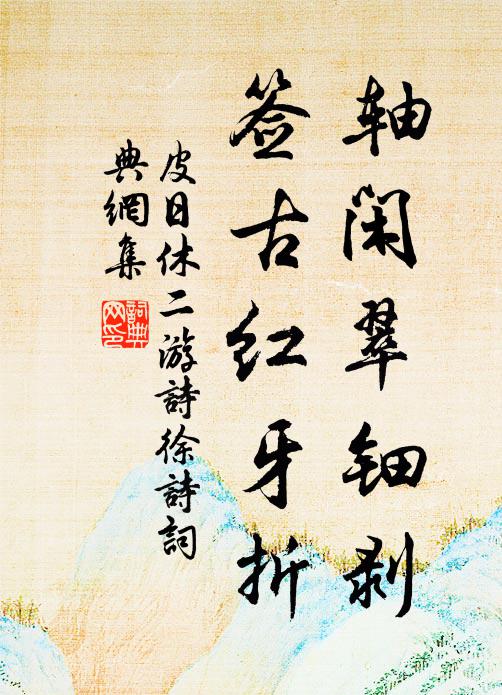 轴闲翠钿剥
签古红牙折
皮日休二游詩徐詩詞
典網集
詞典
网印